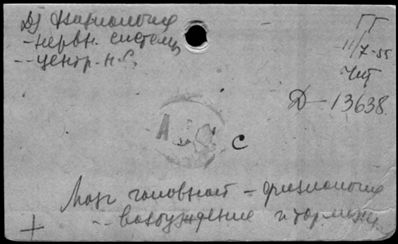 Д) Физиология
- нервн. системы
-- центр. н.с.
ГГ
11/7-55
Чит
Д-13638.
с
Мозг головной - физиология
-- возбуждение и тормож.